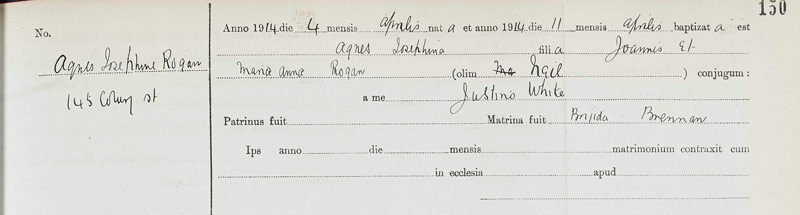 150
No.
Anno 1914 die 4 mensis Aprilis nat a et anno 1914 die 11 mensis Aprilis baptizat a est
Agnes Josephine Rogan
Agnes Josephina fili a Joannis et
Maria Anna Rogan (olim Neil ) conjugum :
145 st
a me Justino White
Patrinus fuit Matrina fuit Brijida Brennan
Ips anno die mensis matrimonium contraxit cum
in ecclesia apud